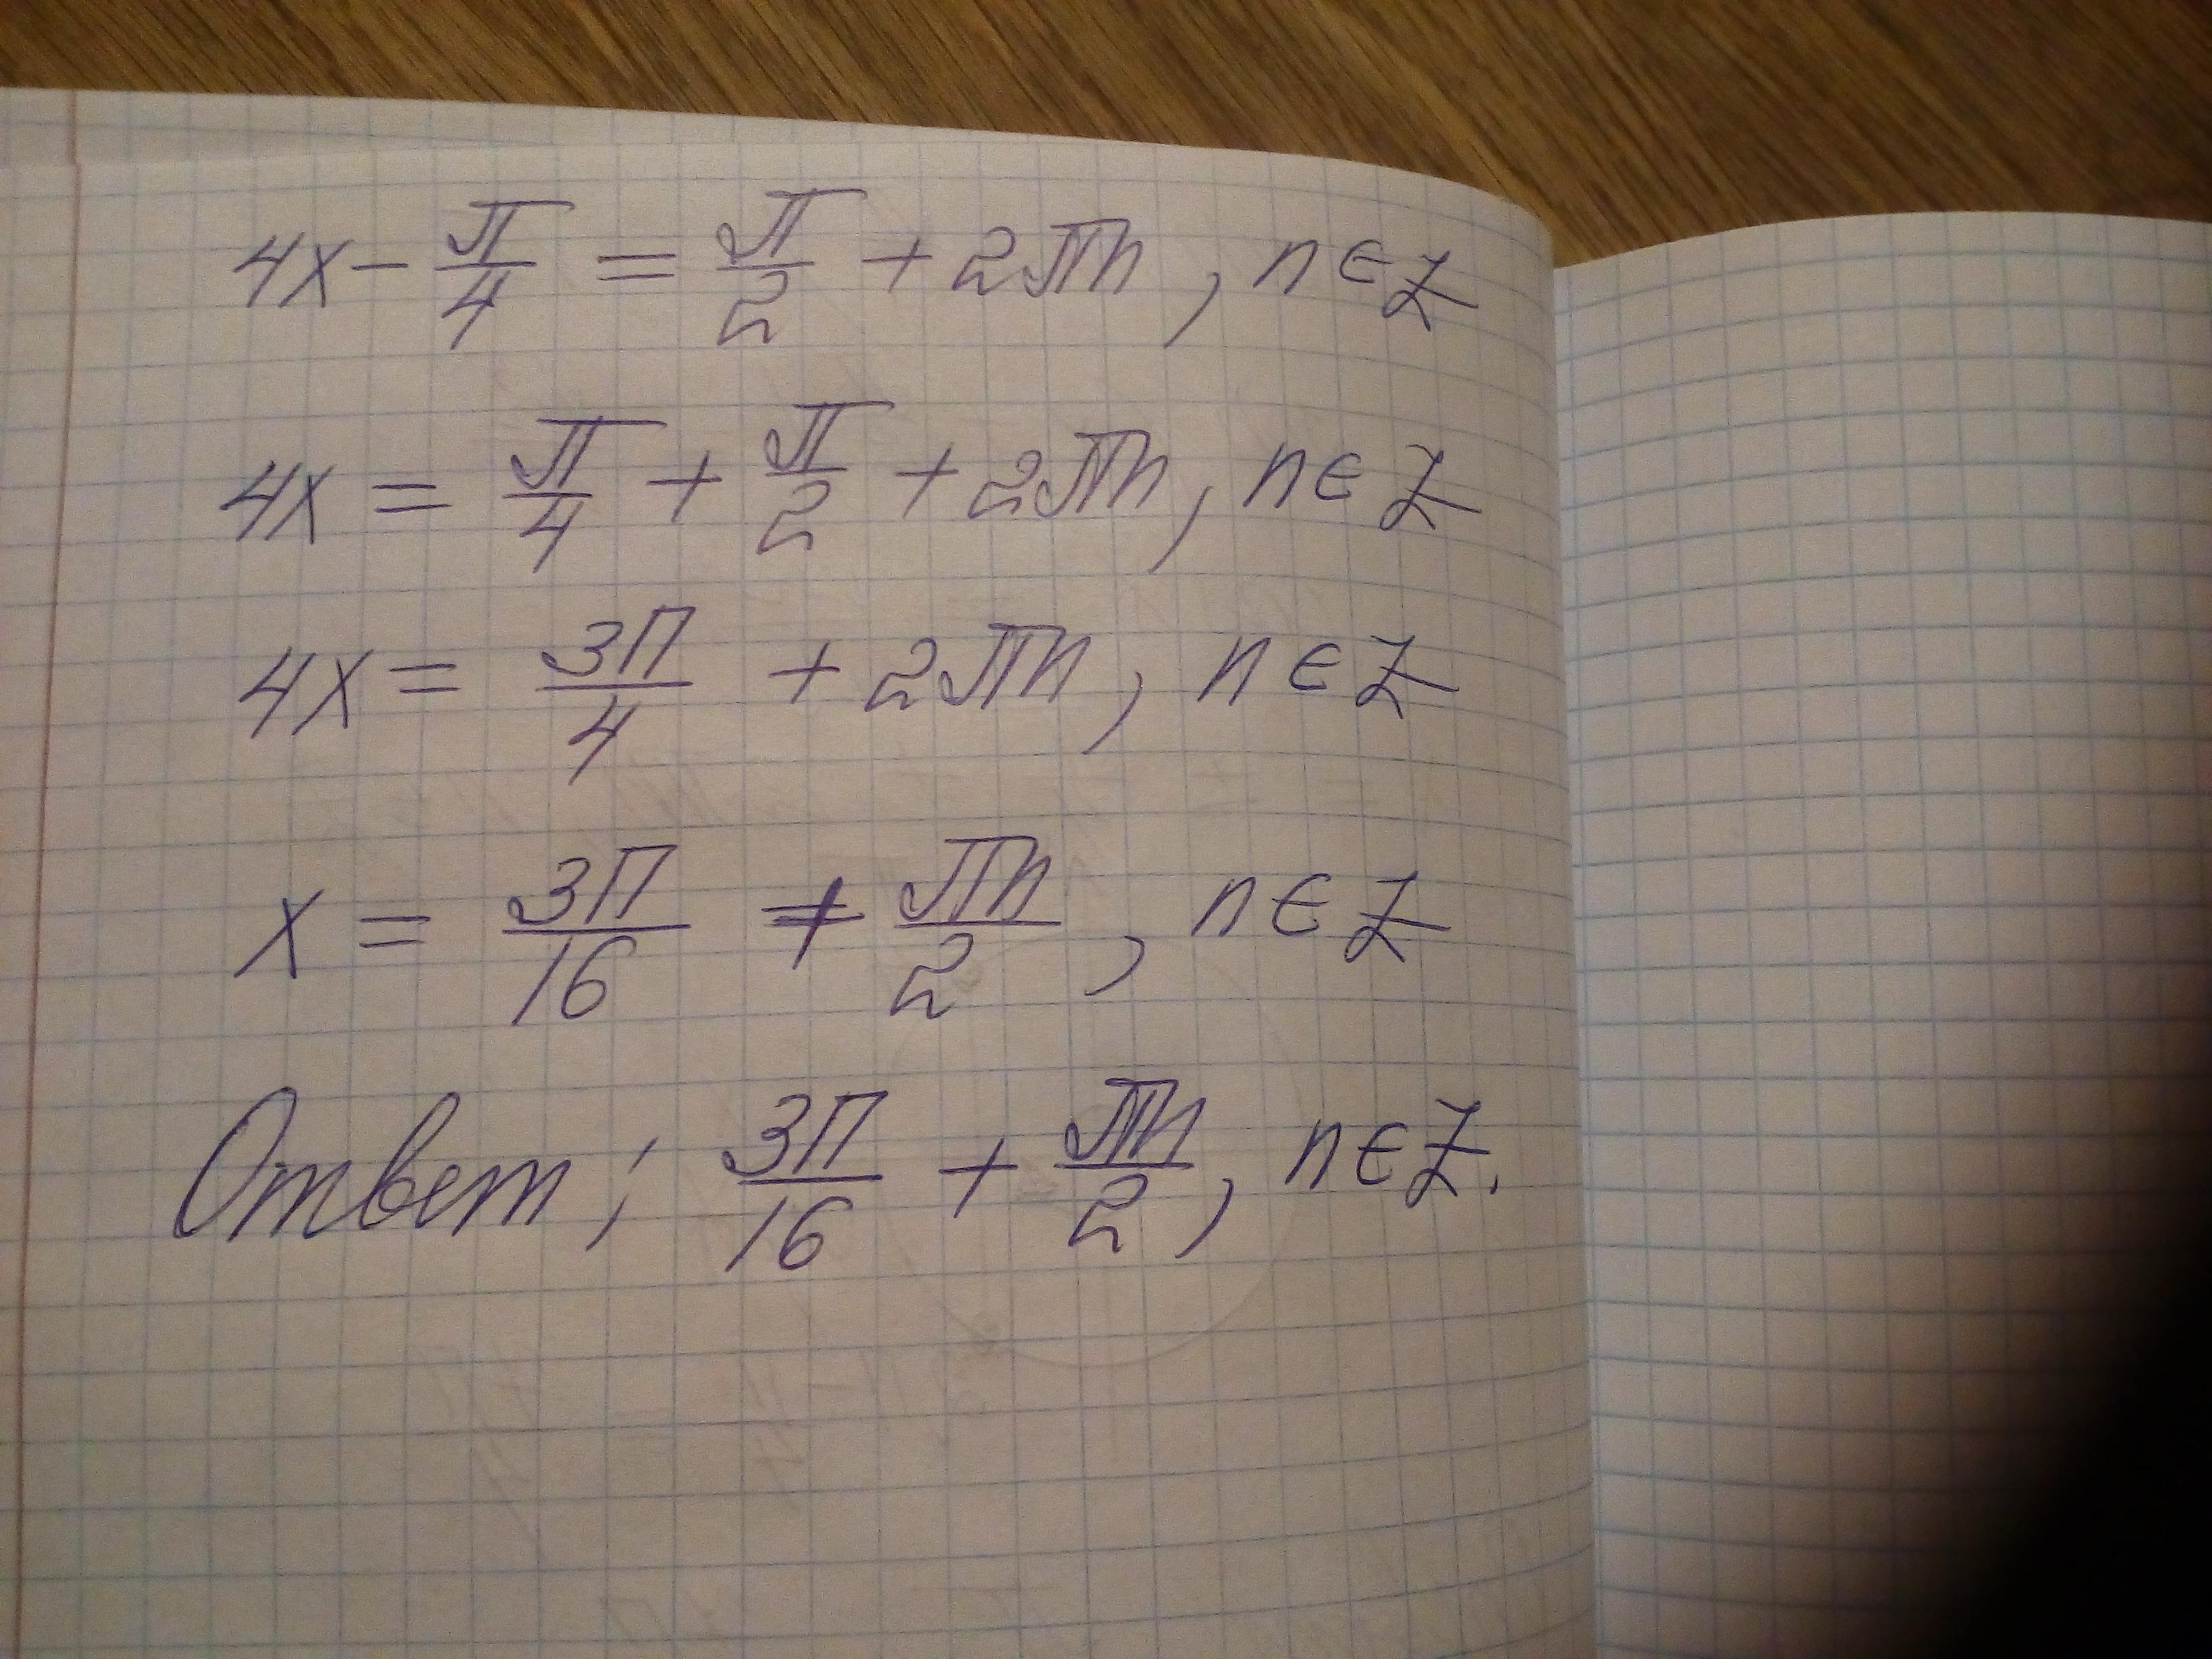 4x - π/4 = π/2 + 2πn, n ∈ Z
4x = π/4 + π/2 + 2πn, n ∈ Z
4x = 3π/4 + 2πn, n ∈ Z
x = 3π/16 + πn/2, n ∈ Z
Ответ: 3π/16 + πn/2, n ∈ Z.